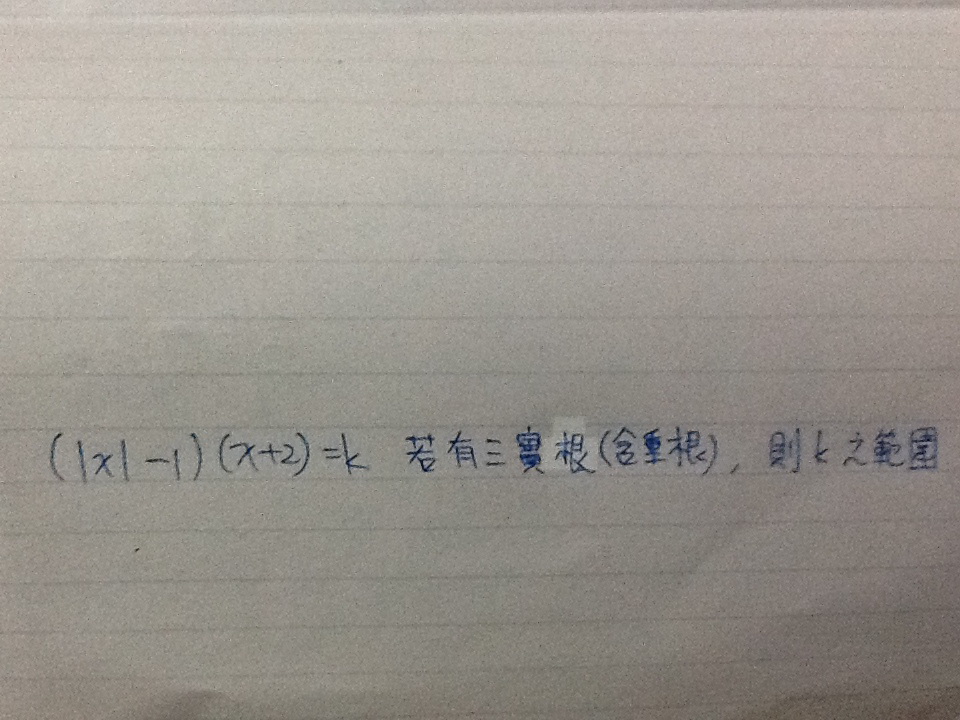 (|x|-1)(x+2)=k 若有三實根(含重根), 則k之範圍